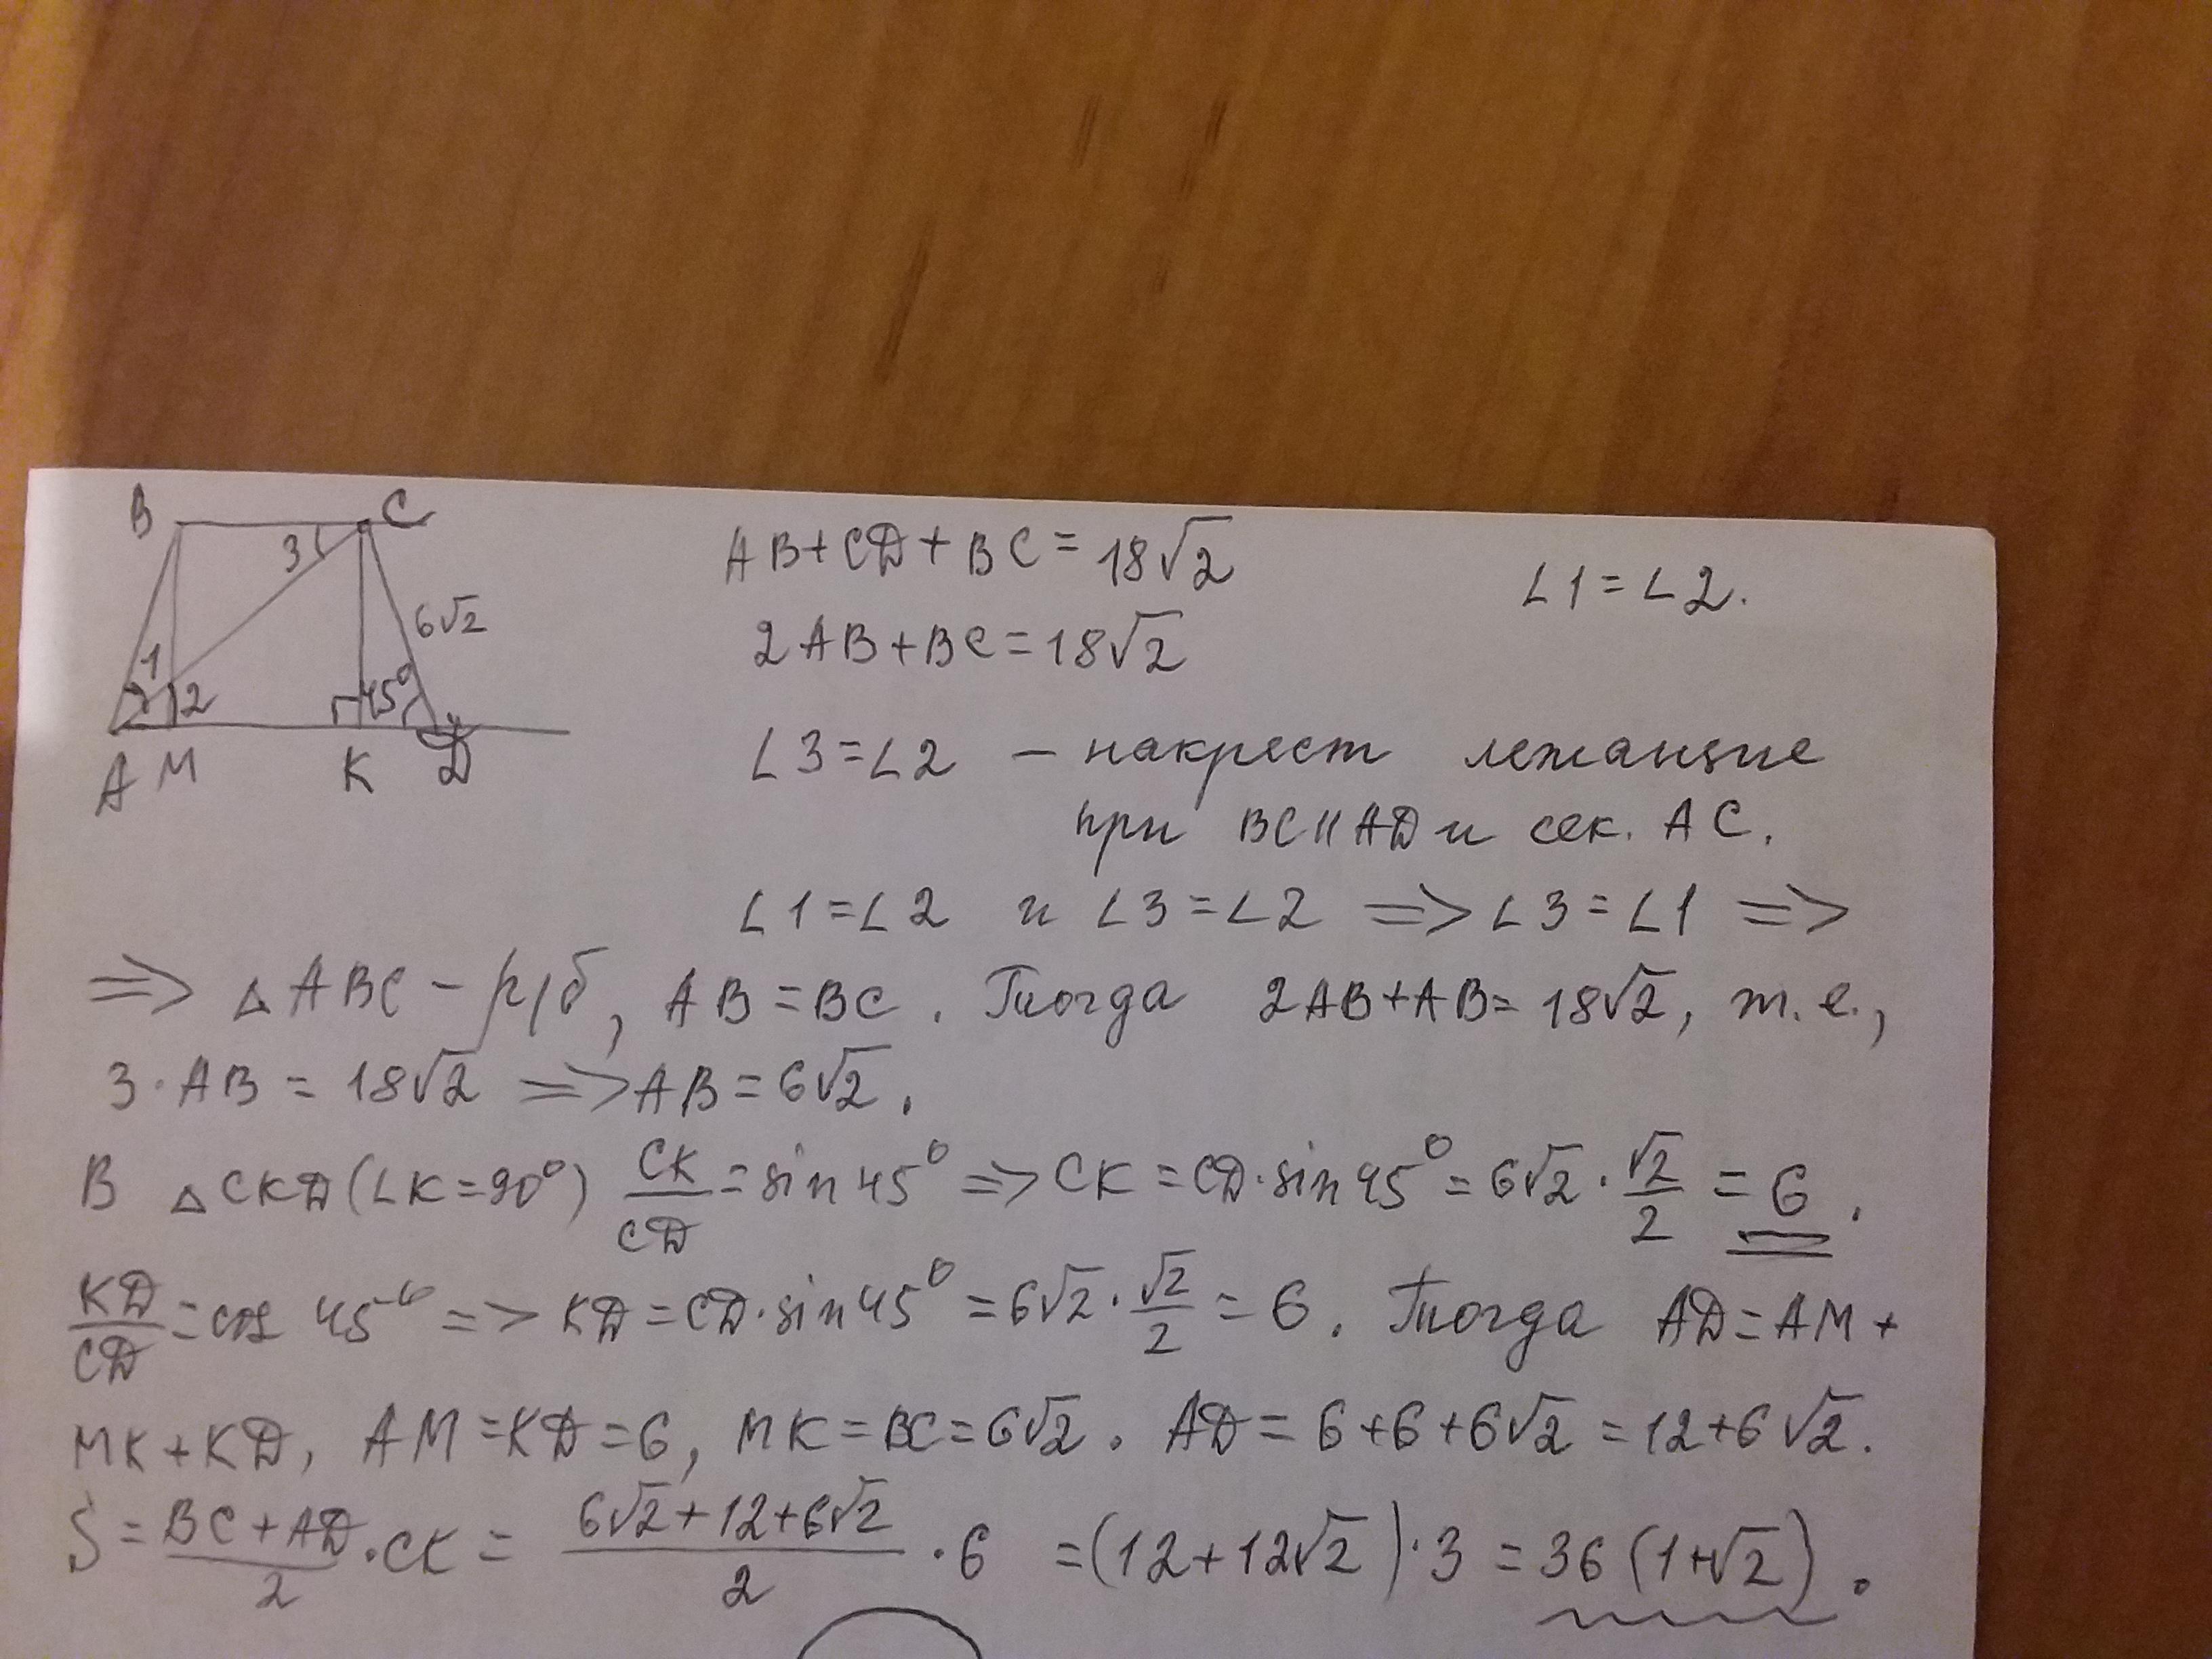 B C
3
6√2
1
2 45°
A M K D
AB+CD+BC=18√2 ∠1=∠2.
2AB+BC=18√2
∠3=∠2 – накрест лежащие
при BC∥AD и сек. AC.
∠1=∠2 и ∠3=∠2 => ∠3=∠1 =>
=> △ABC – р/б, AB=BC. Тогда 2AB+AB=18√2, т.е.,
3·AB=18√2 => AB=6√2.
В △CKD(∠K=90°) CK/CD=sin45° => CK=CD·sin45°=6√2·√2/2=6.
KD/CD=cos 45° => KD=CD·sin45°=6√2·√2/2=6. Тогда AD=AM+
MK+KD, AM=KD=6, MK=BC=6√2. AD=6+6+6√2=12+6√2.
S=(BC+AD)/2·CK=(6√2+12+6√2)/2·6=(12+12√2)·3=36(1+√2).